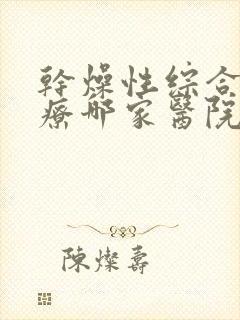 幹燥性綜合
療哪家醫院
陳燦壽